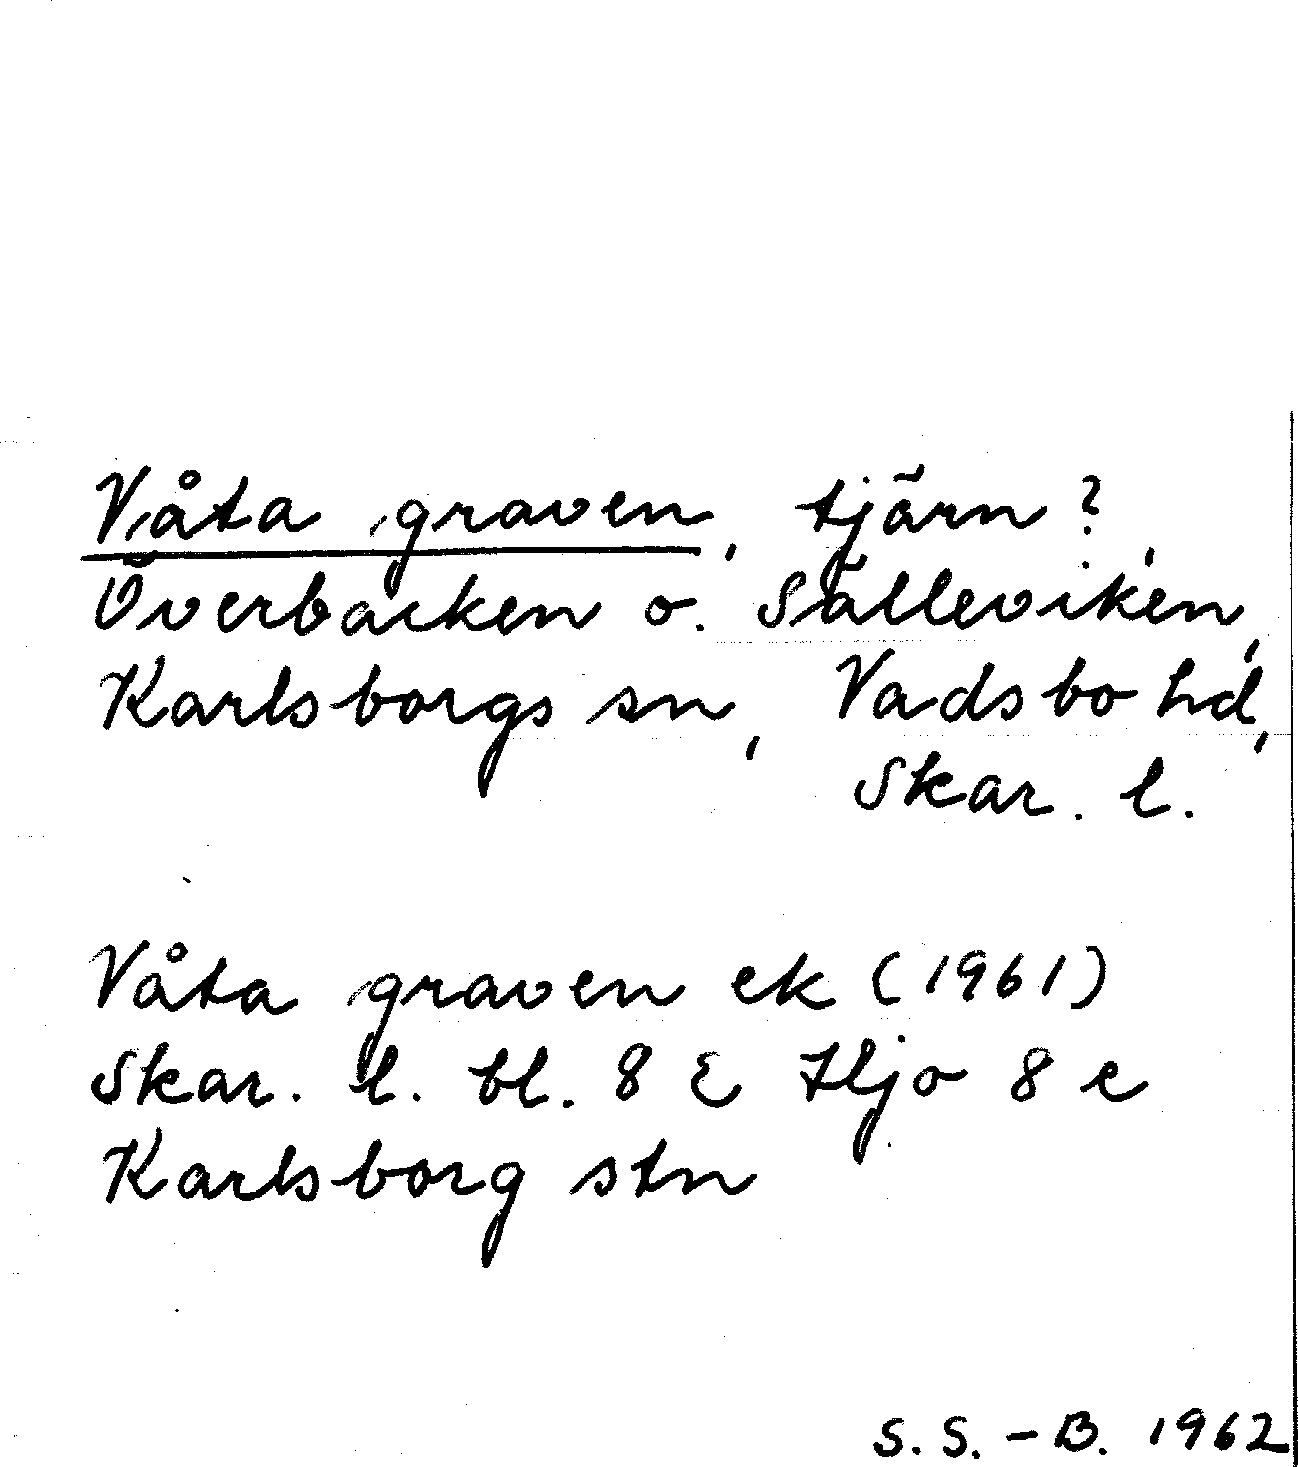 Våta graven, tjärn?,
Överbacken o. Sälleviken,
Karlsborgs sn, Vadsbo hd,
Skar. l.
Våta graven ek (1961)
Skar. l. bl. 8 E Hjo 8 e
Karlsborg stn
S. S. - B. 1962